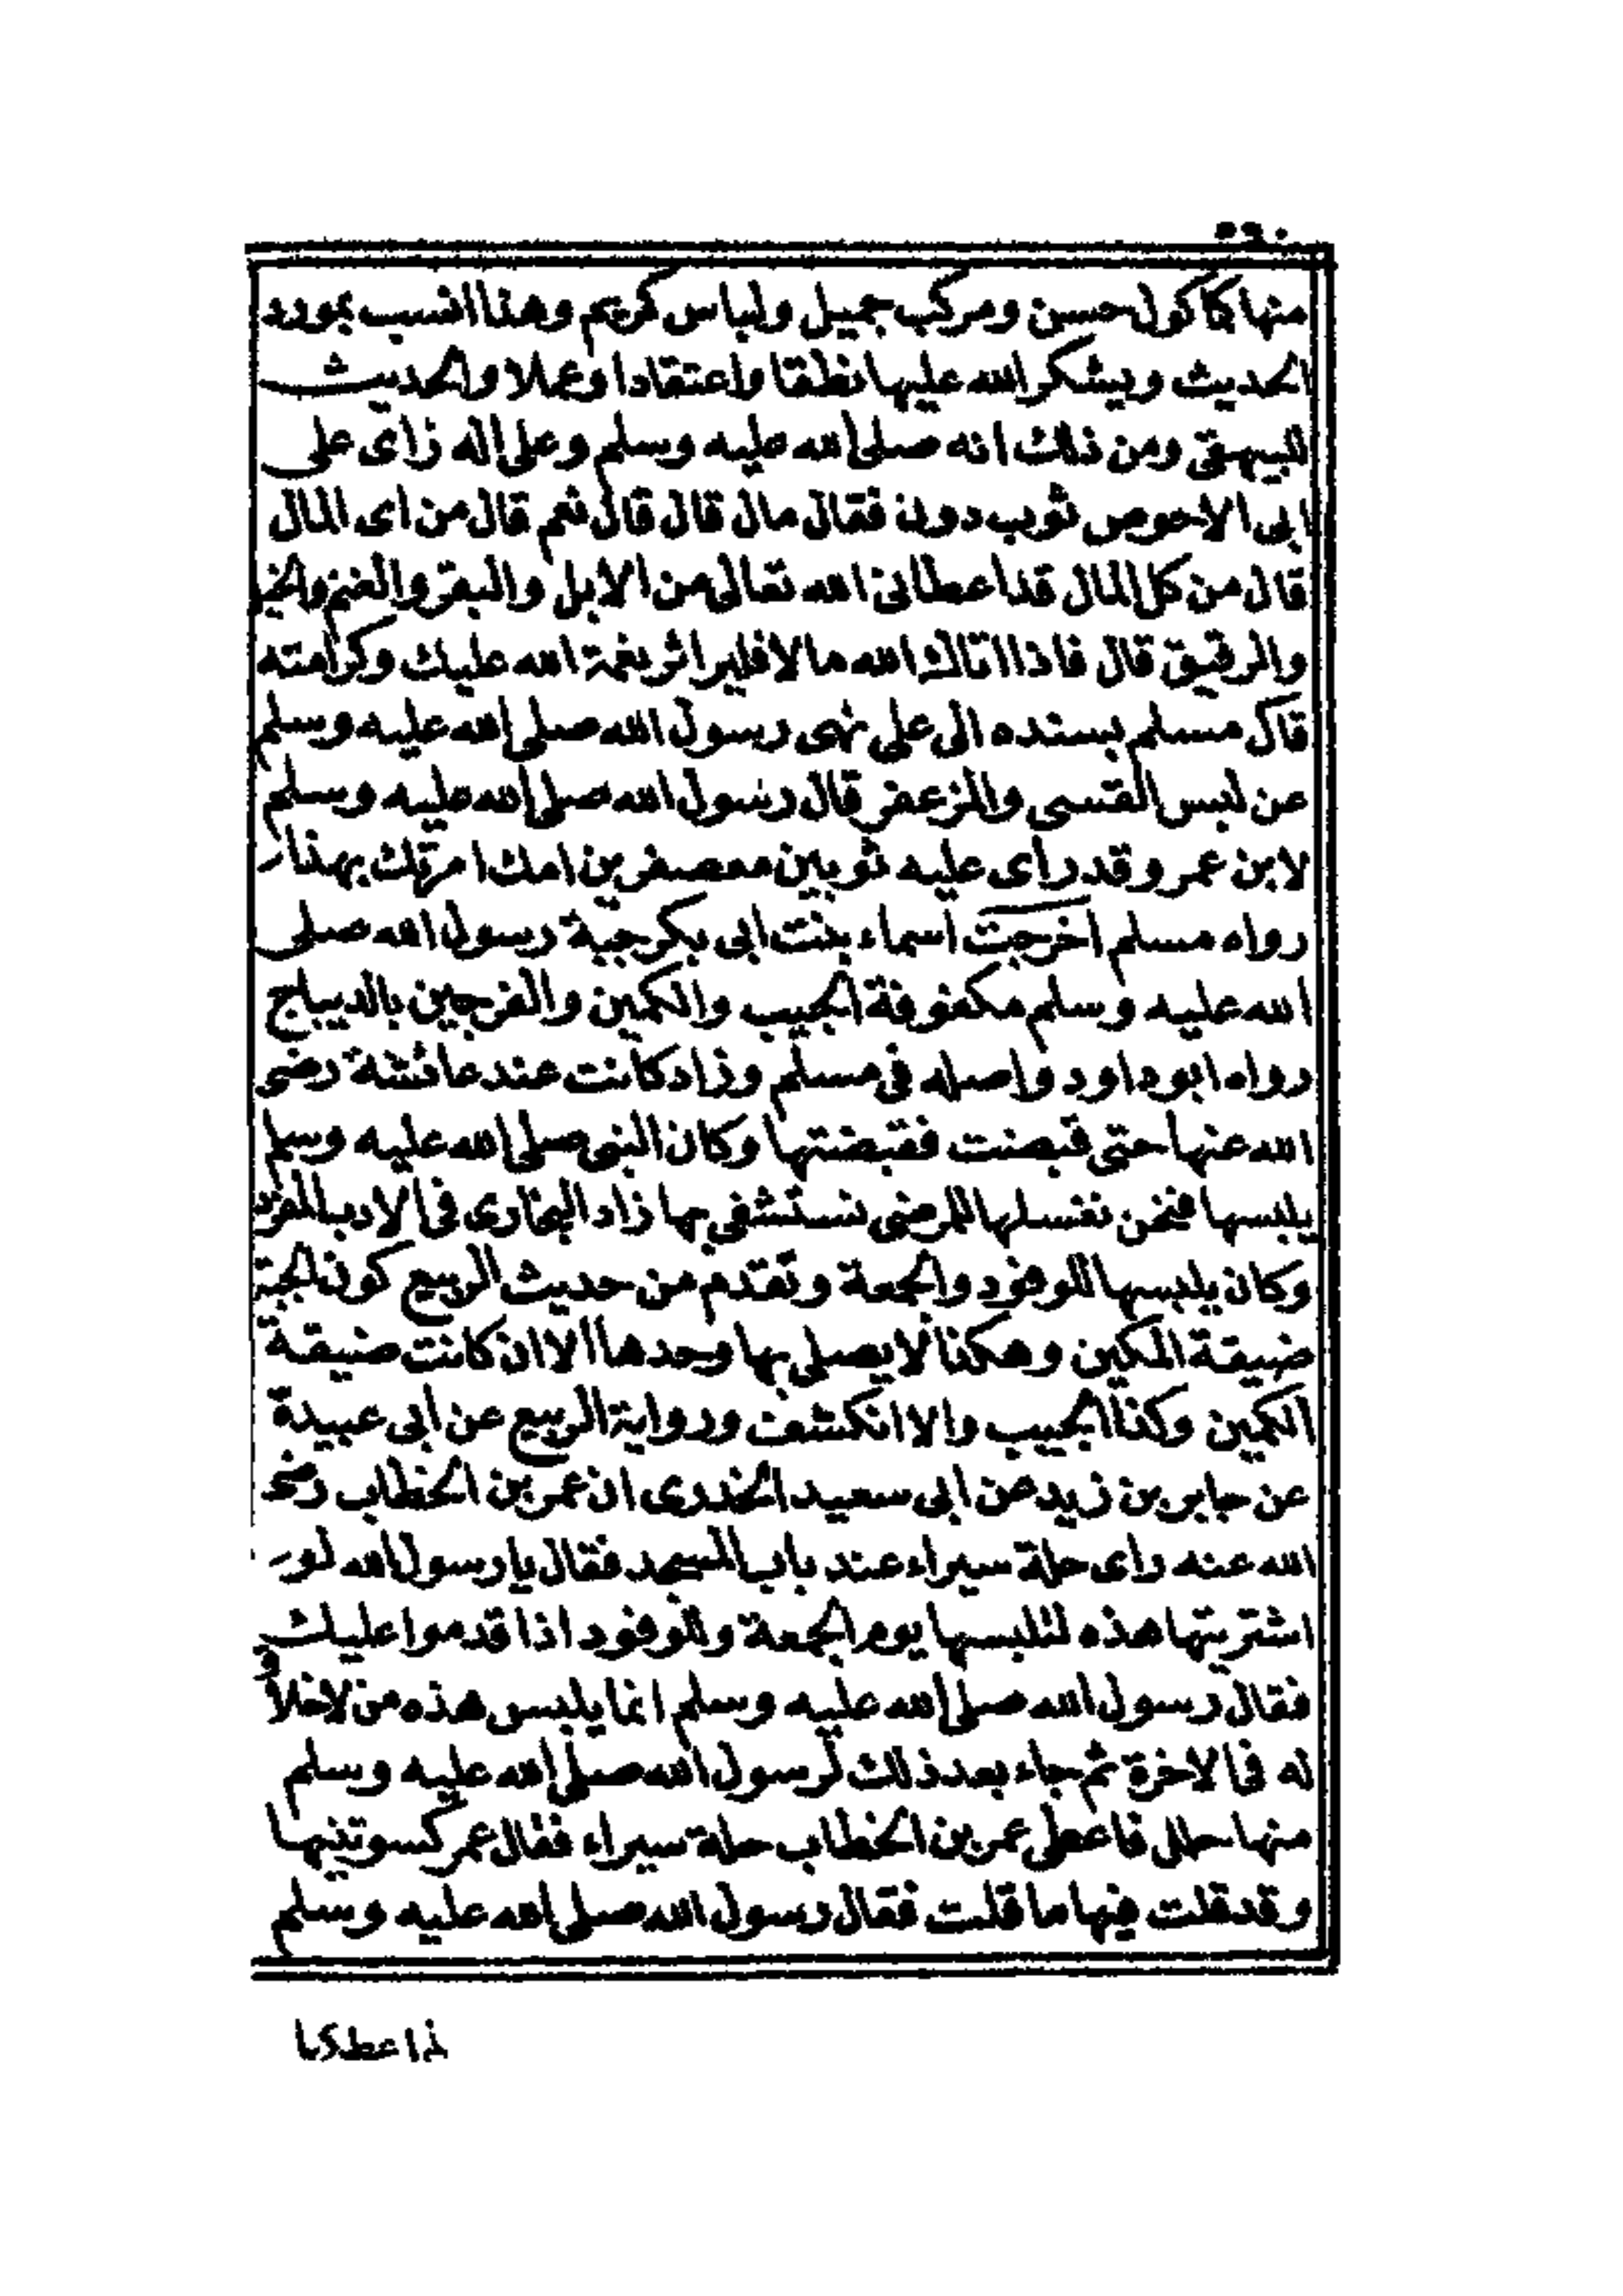 منها كمأكول حسن ومركب جميل ولباس كريم وهذا انسب بمورد
الحديث ويشكر الله عليها نطقا واعتقادا وعملا والحديث
للبيهقى ومن ذلك انه صلى الله عليه وسلم وعلى اله رأى على
ابى الاحوص ثوب دون فقال مال قال قال نعم قال من اى المال
قال من كل المال قد اعطانى الله تعالى من الابل والبقر والغنم والخيل
والرقيق قال فاذا اتاك الله مالا فلير اثر نعمة الله عليك وكرامته
قال مسلم بسنده الى على نهى رسول الله صلى الله عليه وسلم
عن لبس القسى والمزعفر قال رسول الله صلى الله عليه وسلم
لابن عمر وقد رأى عليه ثوبين معصفرين امك امرتك بهذا
رواه مسلم اخرجت اسماء بنت ابى بكر جبة رسول الله صلى
الله عليه وسلم مكفوفة الجيب والكمين والفرجين بالديباج
رواه ابو داود واصله فى مسلم وزاد كانت عند عائشة رضى
الله عنها حتى قبضت فقبضتها وكان النبى صلى الله عليه وسلم
يلبسها فنحن نغسلها للمرضى نستشفى بها زاد البخارى فى الادب المفرد
وكان يلبسها للوفود والجمعة وتقدم من حديث الربيع كون الجبة
ضيقة المكين وهكذا لا يصلى بها وحدها الا ان كانت ضيقة
الكمين وكذا الجيب والا انكشفت ورواية الربيع عن ابى عبيدة
عن جابر بن زيد عن ابى سعيد الخدرى ان عمر بن الخطاب رضى
الله عنه رأى حلة سيراء عند باب المسجد فقال يا رسول الله لو
اشتريتها هذه لتلبسها يوم الجمعة وللوفود اذا قدموا عليك
فقال رسول الله صلى الله عليه وسلم انما يلبس هذه من لا خلاق
له فى الاخرة ثم جاء بعد ذلك لرسول الله صلى الله عليه وسلم
منها حلل فاعطى عمر بن الخطاب حلة سيراء فقال عمر كسوتنيها
وقد قلت فيها ما قلت فقال رسول الله صلى الله عليه وسلم